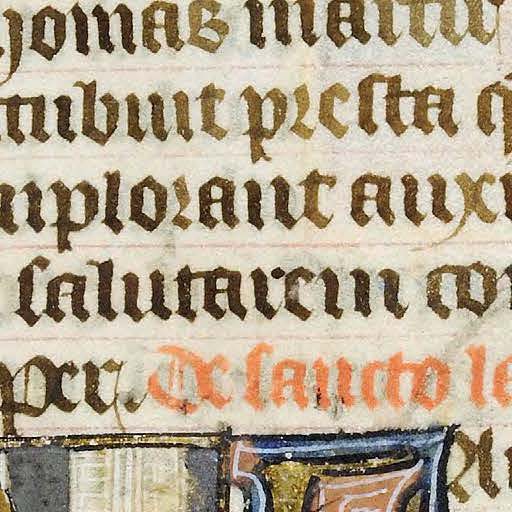 homas martir
cubuit presta q
mplorant auxi
salutarem con
per. De sancto le